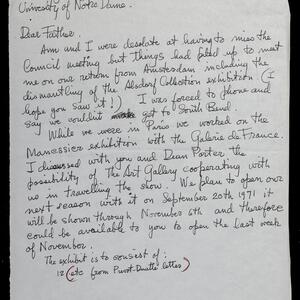 University of Notre Dame.
Dear Father,
Ann and I were desolate at having to miss the
Council meeting but things had piled up to meet
me on our return from Amsterdam including the
dismantling of the Alsdorf Collection exhibition (I
hope you saw it!) I was forced to phone and
say we couldn't get to South Bend.
While we were in Paris we worked on the
Manessier exhibition with the Galerie de France.
I discussed with you and Dean Porter the
possibility of The Art Gallery cooperating with
us in travelling the show. We plan to open our
next season with it on September 20th 1971 it
will be shown through November 6th and therefore
could be available to you to open the last week
of November.
The exhibit is to consist of:
12 (etc from letter)